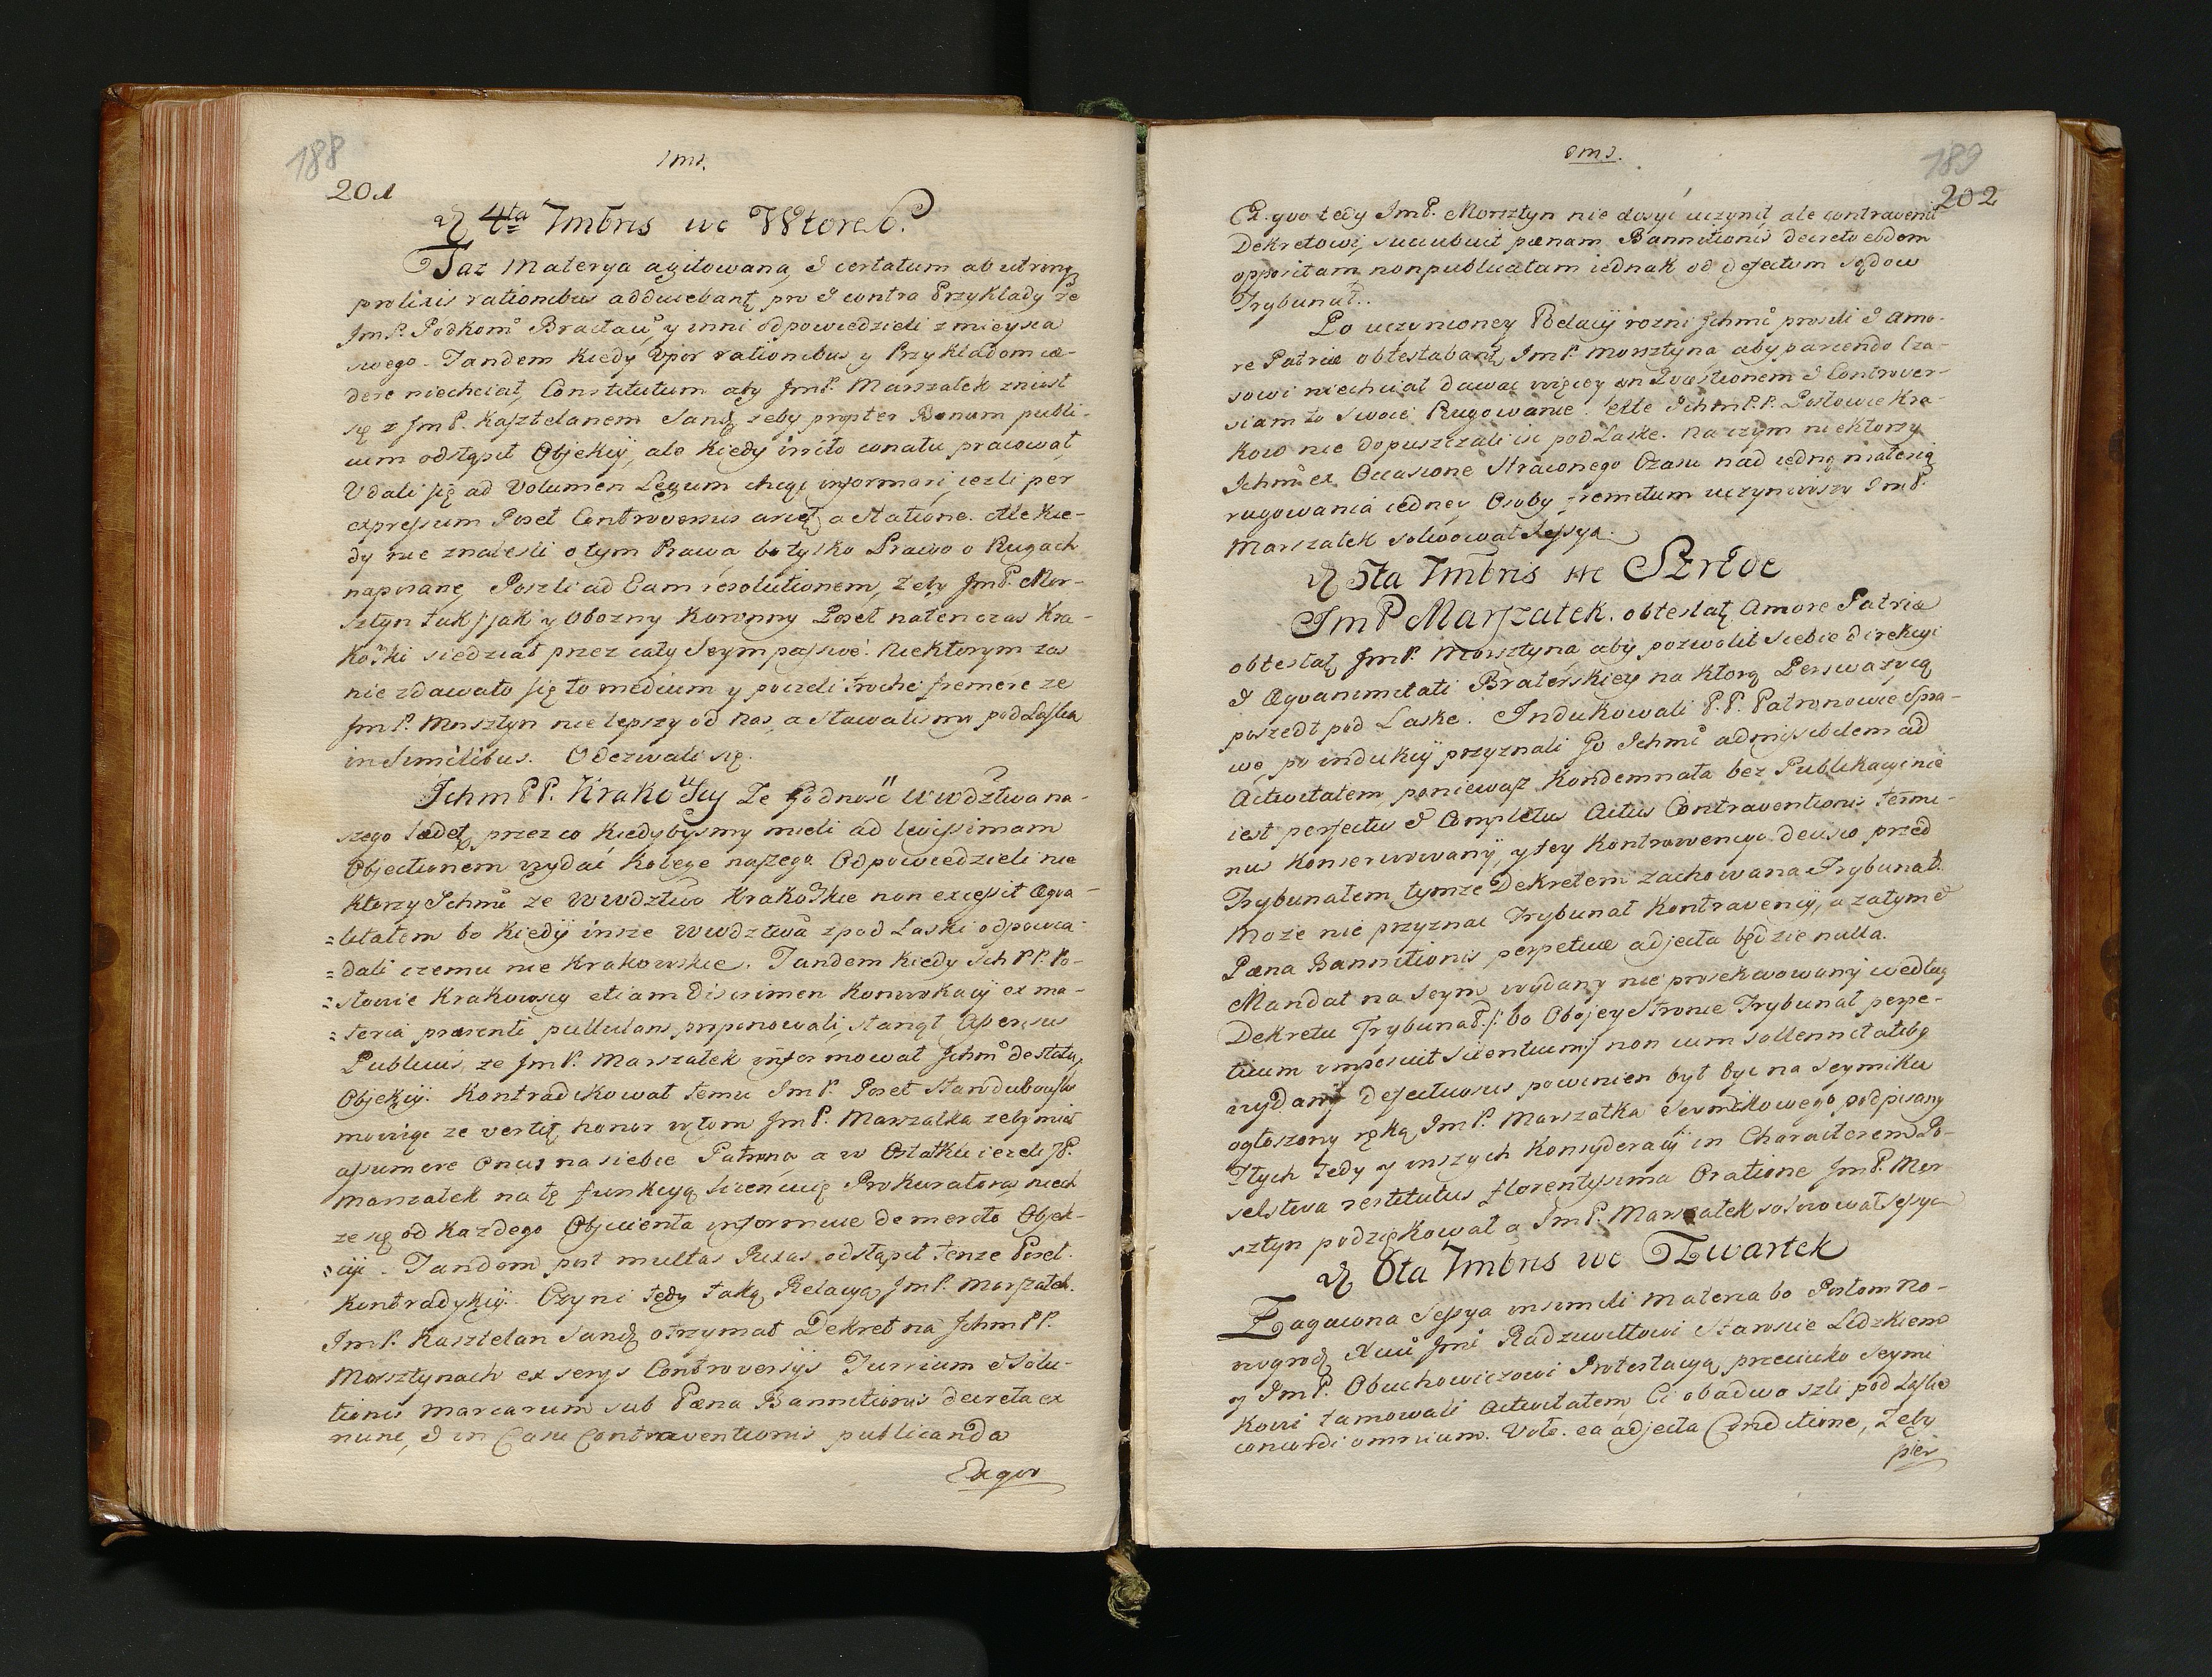 188
1mſ.
201
4ta 7mbris we Wtorek.
Taż Materya agitowana, & certatum ab utrinq
prolixis rationibus adducebant, pro & contra Przykłady że
JmP. Podkom: Bracław: y inni odpowiedzieli z mieysca
swego. Tandem kiedy Upor rationibus y Przykładom ce-
dere niechciał, Constitutum aby JmP. Marszałek zniosł
się z JmP. Kasztelanem Sand: zeby propter Bonum publi-
cum odstąpił Objekcÿ, ale kiedy irrito conatu pracował,
Udali się ad Volumen Legum chcąc informari, iezli per
expressum Poseł Controversus arcet a Statione. Ale kie-
dy nie znalesli o tym Prawa, bo tylko Prawo o Rugach
napisane, Poszli ad Eam resolutionem, Zeby JmP. Mor-
sztyn tak jak y Obozny Koronny Poseł natenczas Kra-
koski siedział przez cały Seym passivé. Niektorym zas
nie zdawało się to medium y poczeli troche fremere ze
JmP. Morsztyn nie lepszy od nas, a stawalismy pod Laską
in Similibus. Odezwali się.
Ichm PP. Krakoscy Ze Godność Wwdztwa na-
szego lædet, przez co kiedybysmy mieli ad levissimam
Objectionem wydać Kolegę naszego. Odpowiedzieli nie
ktorzy Ichmć ze Wwdztwo Krakoskie non excessit Æqua-
litatem bo kiedÿ insze Wwdztwa zpod Laski odpowia-
dali czemu nie Krakowskie. Tandem kiedy Ich PP. Po-
słowie Krakowscy etiam Discrimen Konwokacÿ ex ma-
teria præsenti pullulans proponowali, stanął Assensus
Publicus, ze JmP. Marszałek informował Ichmć de statu
Objekcÿ. Kontradikował temu JmP. Poseł Starodubowski
mowiąc ze vertit honor w tym JmP. Marszałka zeby miał
assumere Onus na siebie Patrona a w Ostatku iezeli JP.
Marszałek na tę funkcyą licencuię Prokuratora, niech
ze się od Kazdego Objicienta informuie de merito Objek-
cÿi. Tandem post multas Rixas odstąpił tenze Poseł
Kontradykcÿi. Czyni tedy taką Relacyą JmP. Marszałek.
JmP. Kasztelan Sand: otrzymał Dekret na Ichm PP.
Morsztynach ex serys Controversÿs Jurium & Solu-
tionis Marcarum sub Pæna Bannitionis decreta ex
nunc, & in Casu Contraventionis publicanda
Ex quo
189
8mſ.
202
Ex quo tedy JmP. Morsztyn nie dosyć uczynił, ale contravenit
Dekretowi, succubuit pænam Bannitionis decreto eodem
appositam nonpublicatam iednak od defectum sądow
Trybunał:.
Po uczynioney Relacÿ rozni Ichmć prosili & Amo-
re Patriæ obtestabant, JmP. Morsztyna aby parcendo Cza-
sowi niechciał dawać więcey in Quæstionem & Controver-
siam to swoie Rugowanie. Ichm P.P. Posłowie Kra-
kow: nie dopuszczali isc pod Laskę. Na czym niektorzy
Ichmć ex Occasione straconego Czasu nad iedną materią
rugowania iedney Osoby fremitum uczyniwszy JmP.
Marszałek solwował Sessyą.
5ta 7mbris we Szrode
JmP Marszałek. obtestat, Amore Patriæ
obtestat, JmP. Morsztyna aby pozwolił siebie direkcyi
& Æquanimitati Braterskiey na ktorą Perswazyą
poszedł pod Laskę. Indukowali P.P. Patronowie Spra-
wę, po indukcÿ przyznali go Ichmć admissibilem ad
Activitatem, poniewasz Kondemnata bez Publikacyi nie
iest perfectus & Completus Actus Contraventionis termi-
nus konserwowanÿ, y tey Kontrawencyi decisio przed
Trybunałem, tymze Dekretem zachowana Trybunał:
Moze nie przyznac Trybunał Kontravencÿ, a zatym &
Pæna Bannitionis perpetuæ adjecta będzie nulla.
Mandat na Seym wydany nie prosekwowanÿ według
Dekretu Trybunał:/: bo Obojey Stronie Trybunał perpe-
tuum imposuit silentium:/ non cum sollennitatibg
wydanÿ defectuosus powinien był byc na Seymiku
ogłoszony ręką JmP. Marszałka Seymikowego podpisany
Z tych tedy y inszych Konsyderacÿ in Characterem Po-
selstwa restitutus florentissima Oratione JmP. Mor-
sztyn podziękował a JmP. Marszałek solwował Sessyą
6ta 7mbris we Czwartek
Zagaiona Sessya in simili Materia bo Posłom No-
wogrod: Xciu Jmć Radziwiłłowi Staroscie Lidzkiemu
y JmP. Obuchowiczowi Protestacyą przeciwko Seymi
kowi tamowali Activitatem. Ci obadwa szli pod Laskę
concordi omnium. Voto. ea adjecta Conditione, Zeby
pier